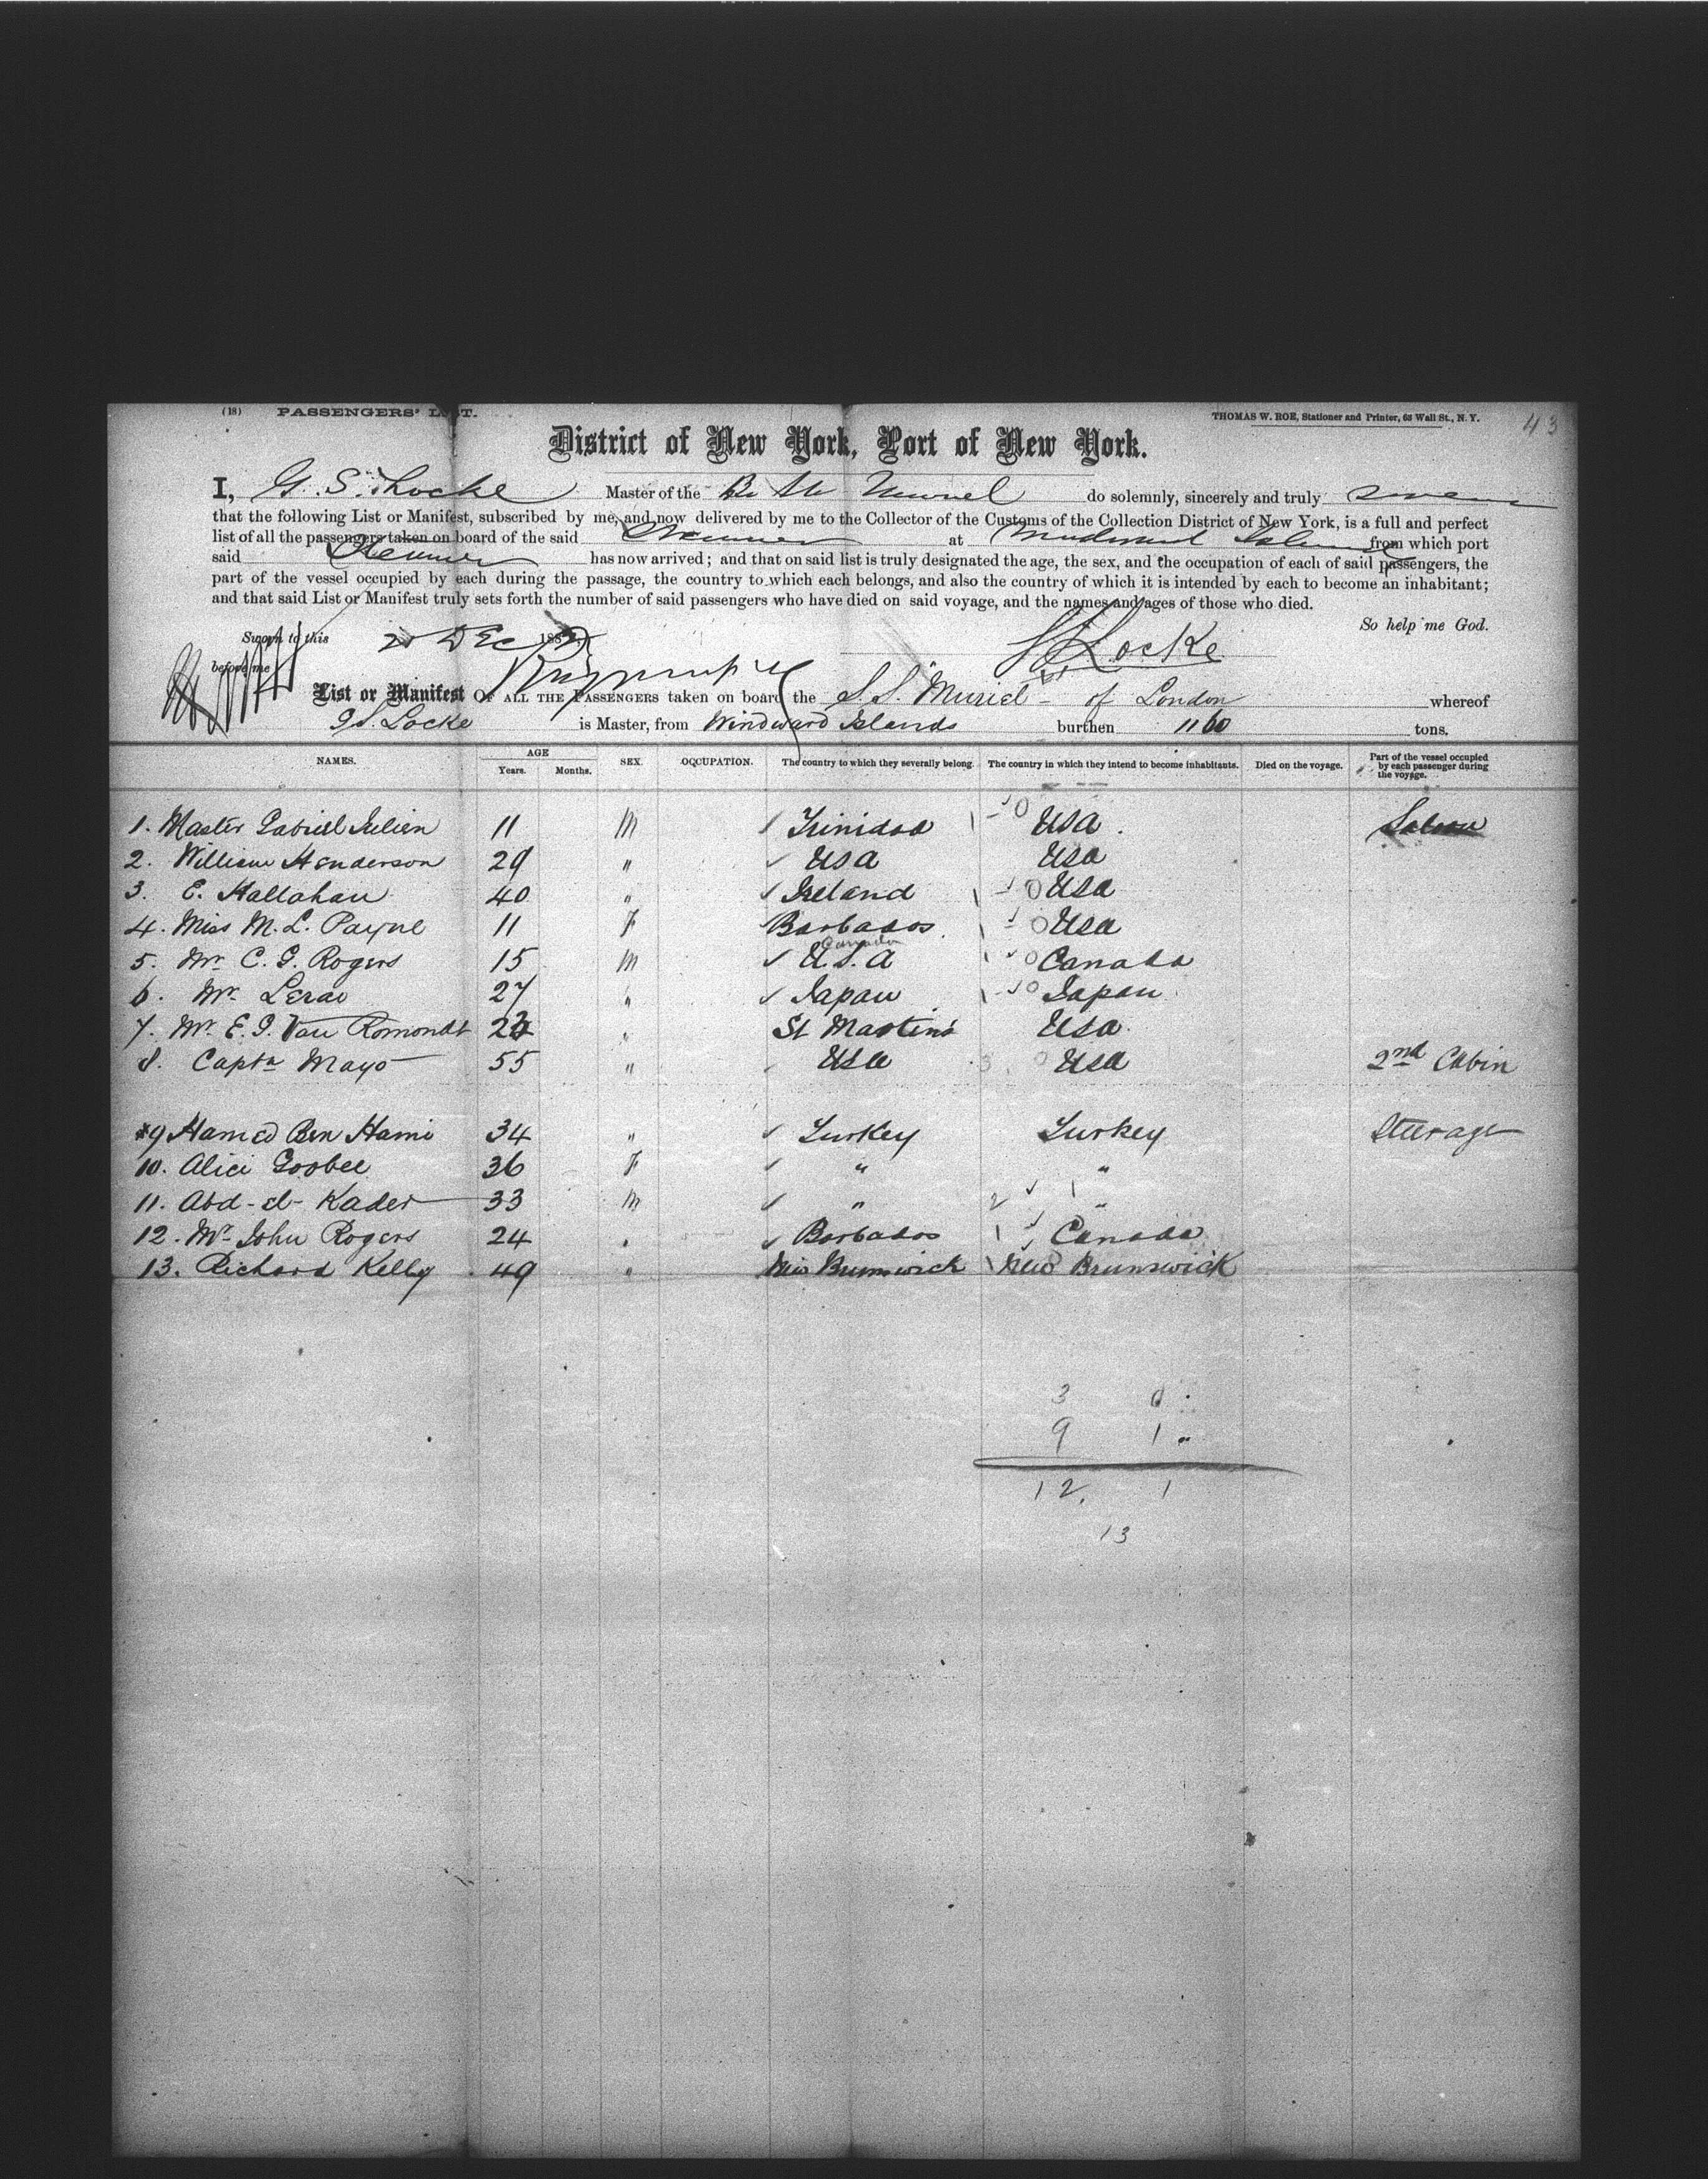 (18) PASSENGERS' LIST. THOMAS W. ROE, Stationer and Printer, 63 Wall St., N. Y. 43
District of New York, Port of New York.
I, G. S. Locke Master of the Muriel do solemnly, sincerely and truly swear
that the following List or Manifest, subscribed by me, and now delivered by me to the Collector of the Customs of the Collection District of New York, is a full and perfect
list of all the passengers taken on board of the said Steamer at Windward Islands from which port
said Steamer has now arrived; and that on said list is truly designated the age, the sex, and the occupation of each of said passengers, the
part of the vessel occupied by each during the passage, the country to which each belongs, and also the country of which it is intended by each to become an inhabitant;
and that said List or Manifest truly sets forth the number of said passengers who have died on said voyage, and the names and ages of those who died.
So help me God.
Sworn to this Dec 188
Locke
before me
List or Manifest OF ALL THE PASSENGERS taken on board the S.S. Muriel - of London whereof
G.S. Locke is Master, from Windward Islands burthen 1160 tons.
NAMES. AGE Years. Months. SEX. OCCUPATION. The country to which they severally belong. The country in which they intend to become inhabitants. Died on the voyage. Part of the vessel occupied by each passenger during the voyage.
1. Master Gabriel Julien 11 M Trinidad USA. Saloon
2. William Henderson 29 " USA USA
3. E. Hallahan 40 " Ireland USA
4. Miss M. L. Payne 11 F Barbados USA
Canada
5. Mr C. G. Rogers 15 M U.S.A Canada
6. Mr. Lerao 27 " Japan Japan
7. Mr. E. J. Van Romondt " St Martin's USA
8. Captn Mayo 55 " USA USA 2nd Cabin
9 Hamed Ben Hami 34 " Turkey Turkey Steerage
10. Alice Goobee 36 F " "
11. Abd-el-Kader 33 M " "
12. Mr John Rogers 24 " Barbados Canada
13. Richard Kelly 49 " New Brunswick New Brunswick
3 0
9 1 "
12, 1
13